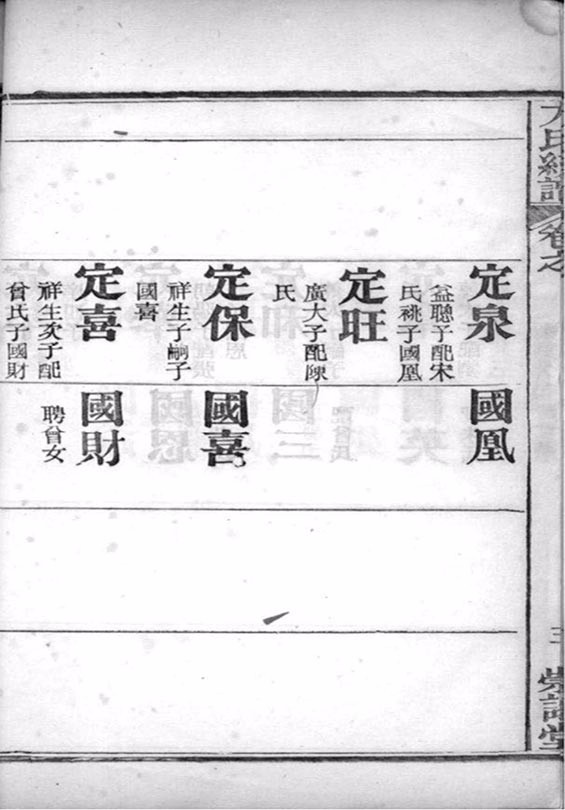 定泉
益聰子配宋
氏祧子國凰
國凰
定旺
廣大子配陳
氏
定保
祥生子嗣子
國喜
國喜
定喜
祥生次子配
曾氏子國財
國財
聘曾女